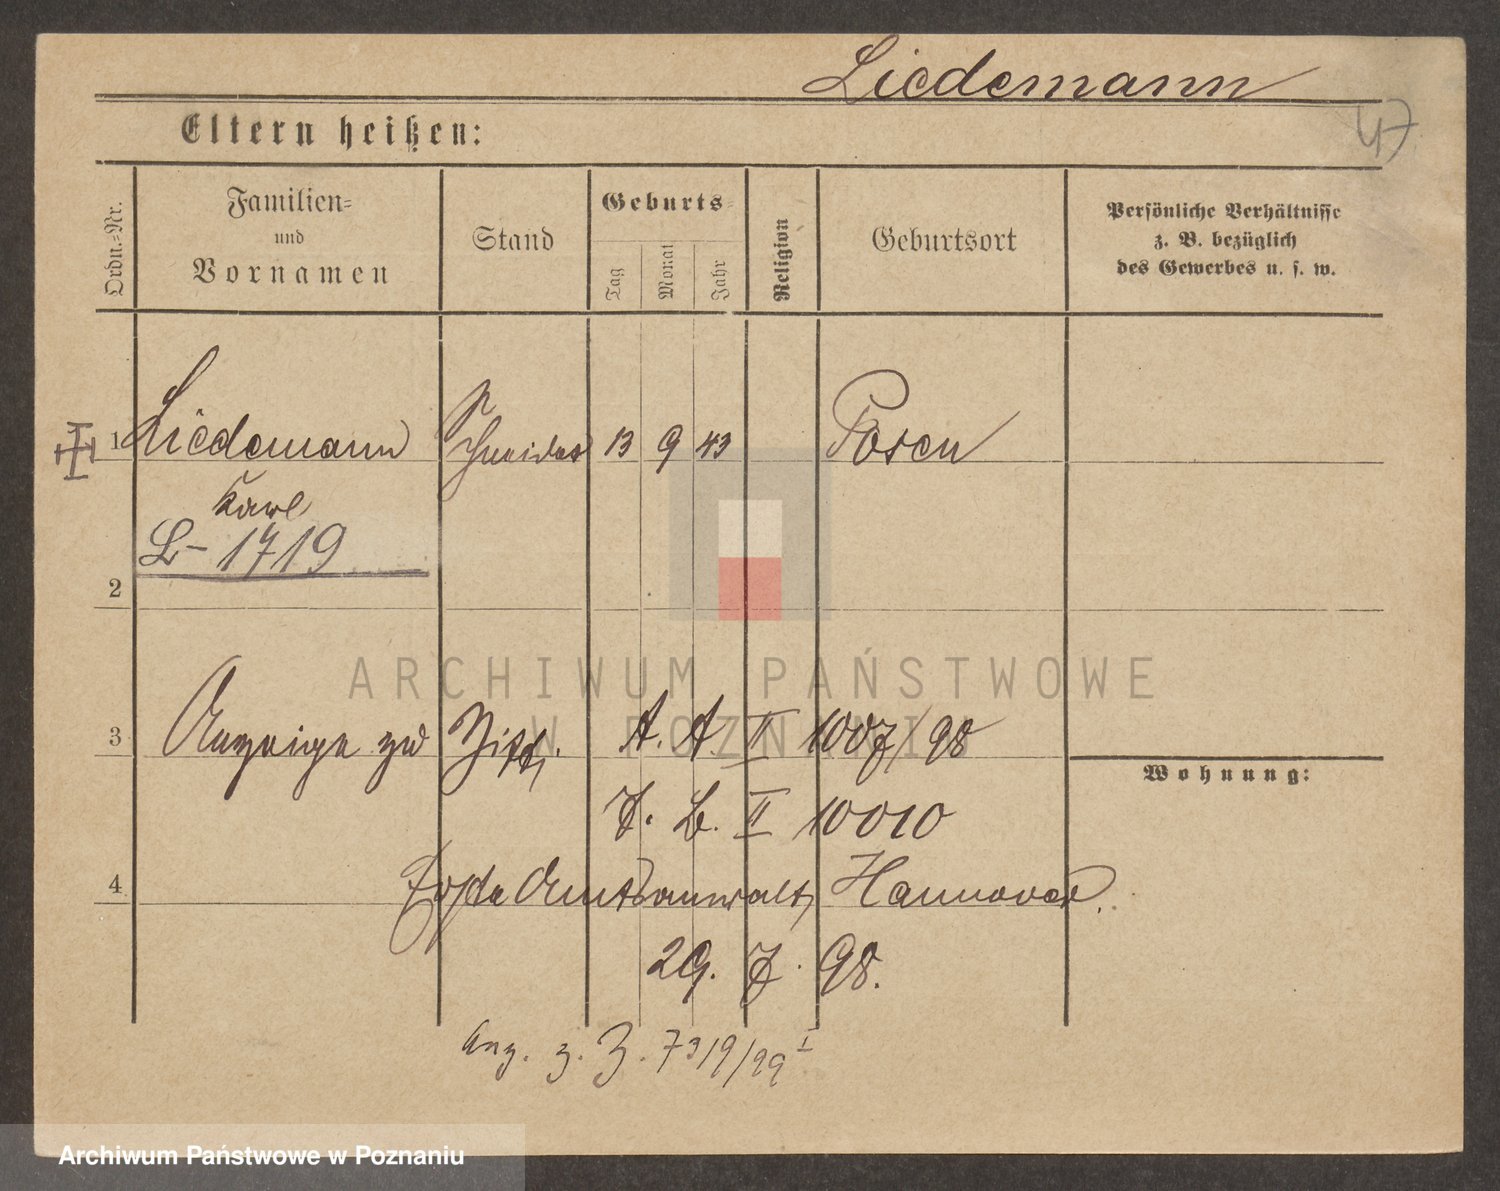 Liedemann
47
Eltern heißen:
Ordn.-Nr.
Familien-
und
Vornamen
Stand
Geburts-
Tag
Monat
Jahr
Religion
Geburtsort
Persönliche Verhältnisse
z. B. bezüglich
des Gewerbes u. s. w.
1 Liedemann Schneider 13 9 43 Posen
Karl
L- 1719
2
ARCHIWUM PAŃSTWOWE
W POZNANIU
3 Anzeige zu A. A. II 1007/98
Wohnung:
J. B. II 10010
4 Amtsanwalt, Hannover.
29. 7. 98.
Anz. z. Z. 7319/99 I
Archiwum Państwowe w Poznaniu